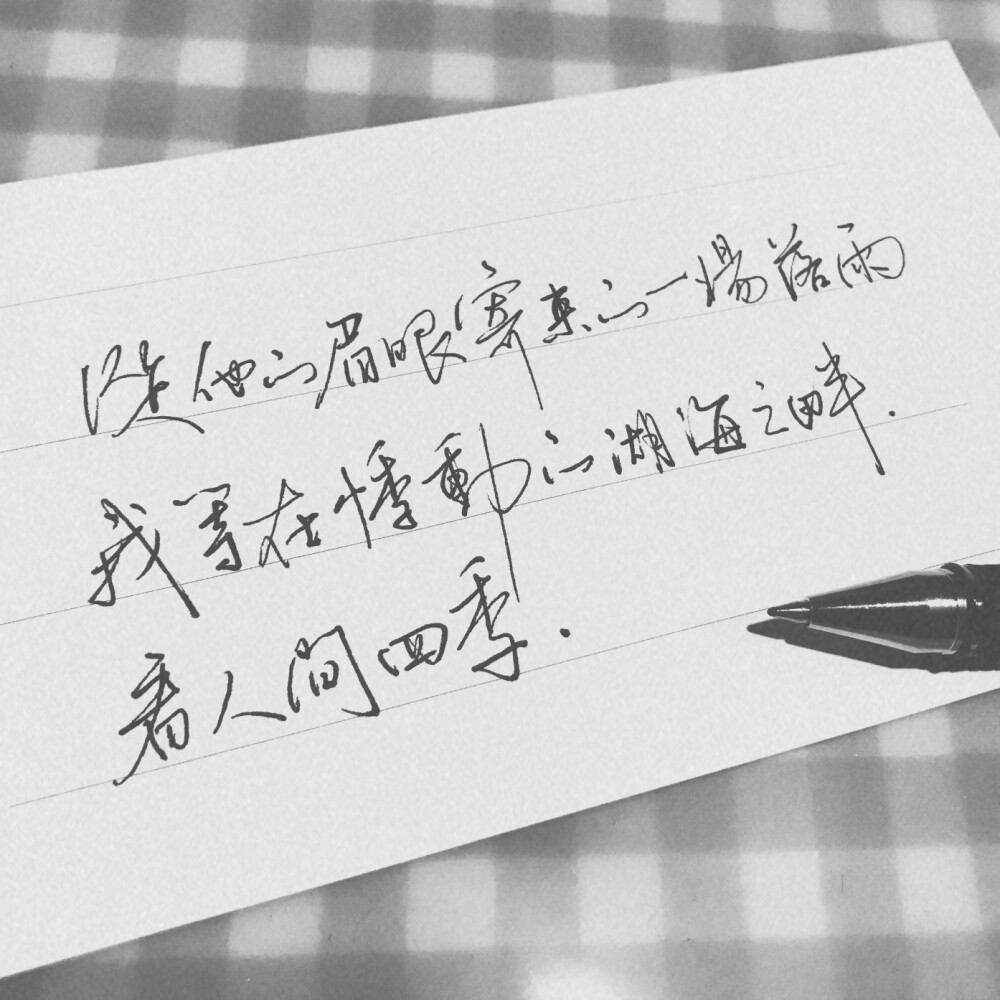 從他的眉眼寄來的一場落雨
我等在悸動的湖海之畔.
看人間四季.